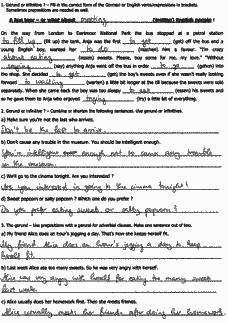 1. Gerund or infinitive ? – Fill in the correct form of the German or English verbs/expressions in brackets.
Sometimes prepositions are needed as well.
A bus tour – or what about meeting (treffen) English people !
On the way from London to Earlsmear National Park the bus stopped at a petrol station
to fill up (fill up) the tank. Anja was the first to get (get) off the bus and a
young English boy, wanted her to do (machen) him a favour. "I'm crazy
about eating (essen) sweets. Please, buy some for me, my love." "Without
saying (say) anything Anja went off the bus in order to go (gehen) into
the shop. She decided to get (get) the boy's sweets even if she wasn't really looking
forward to waiting (warten) a little bit longer at the till because the sweets were sold
separately. When she came back the boy was too sleepy to eat (essen) his sweets and
so he gave them to Anja who enjoyed trying (try) a little of everything.
2. Gerund or infinitive ? – Combine or shorten the following sentences. Use gerund or infinitive.
a) Make sure you're not the last who arrives.
Don't be the last to arrive.
b) Don't cause any trouble in the museum. You should be intelligent enough.
You're intelligent enough not to cause any trouble
in the museum.
c) We'll go to the cinema tonight. Are you interested ?
Are you interested in going to the cinema tonight?
d) Sweet popcorn or salty popcorn ? Which one do you prefer ?
Do you prefer eating sweet or salty popcorn?
3. The gerund – Use prepositions with a gerund for adverbial clauses. Make one sentence out of two.
a) My friend Alice does an hour's jogging a day. That's how she keeps herself fit.
My friend Alice does an hour's jogging a day to keep
herself fit.
b) Last week Alice ate too many sweets. So he was very angry with herself.
Alice was very angry with herself for eating too many sweets
last week.
c) Alice usually does her homework first. Then she meets friends.
Alice usually meets her friends after doing her homework.